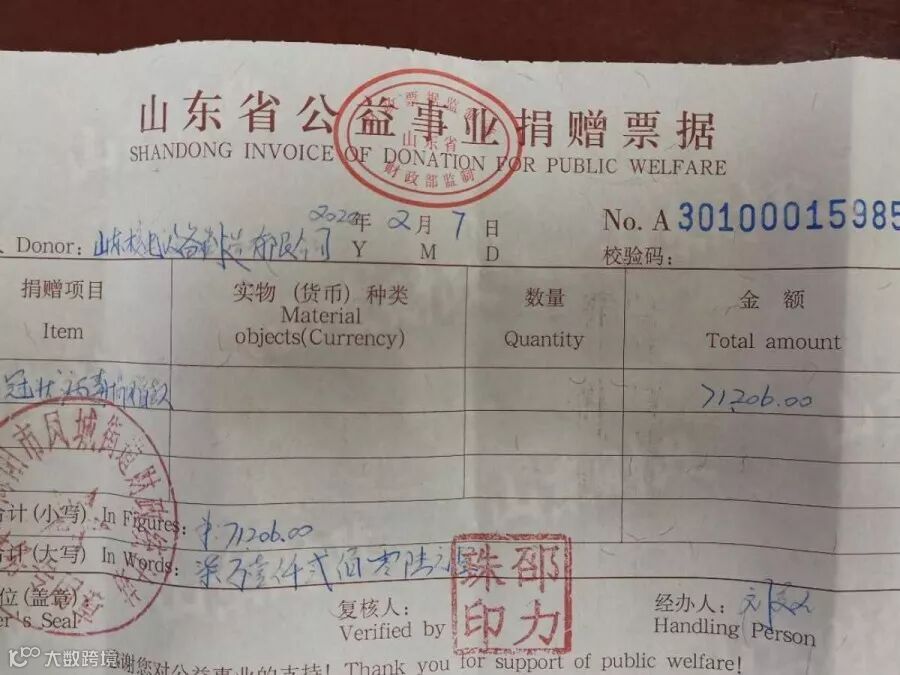 山东省公益事业捐赠票据
SHANDONG INVOICE OF DONATION FOR PUBLIC WELFARE
山东省
财政部监制
2020年 2月 7日
Y M D
No. A 30100015985
Donor: 山东核电设备制造有限公司
校验码:
捐赠项目 实物 (货币) 种类 数量 金额
Item Material objects(Currency) Quantity Total amount
冠状病毒 71206.00
市凤城街道财政
计(小写) In Figures: ¥71206.00
计(大写) In Words: 柒万壹仟贰佰零陆元整
位(盖章) 复核人: 经办人:
er's Seal Verified by Handling Person
邵力
珠印
感谢您对公益事业的支持! Thank you for support of public welfare!
大数跨境